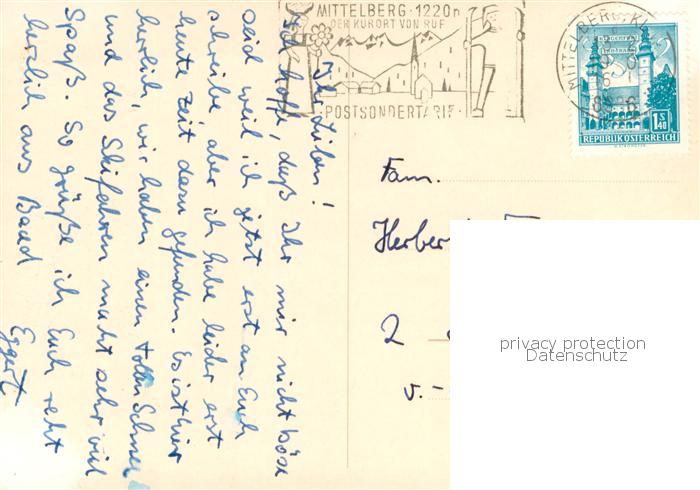 Ihr Lieben!
Ich hoffe, daß Ihr mir nicht böse
seid weil ich jetzt erst an Euch
schreibe, aber ich habe leider erst
heute Zeit dazu gefunden. Es ist hier
herrlich, wir haben einen tollen Schnee
und das Skifahren macht sehr viel
Spaß. So grüße ich Euch recht
herzlich aus Baad
Eggert
MITTELBERG · 1220m
DER KURORT VON RUF
POSTSONDERTARIF
MITTELBERG, KL
1S40
REPUBLIK ÖSTERREICH
Fam.
2
v.-
privacy protection
Datenschutz